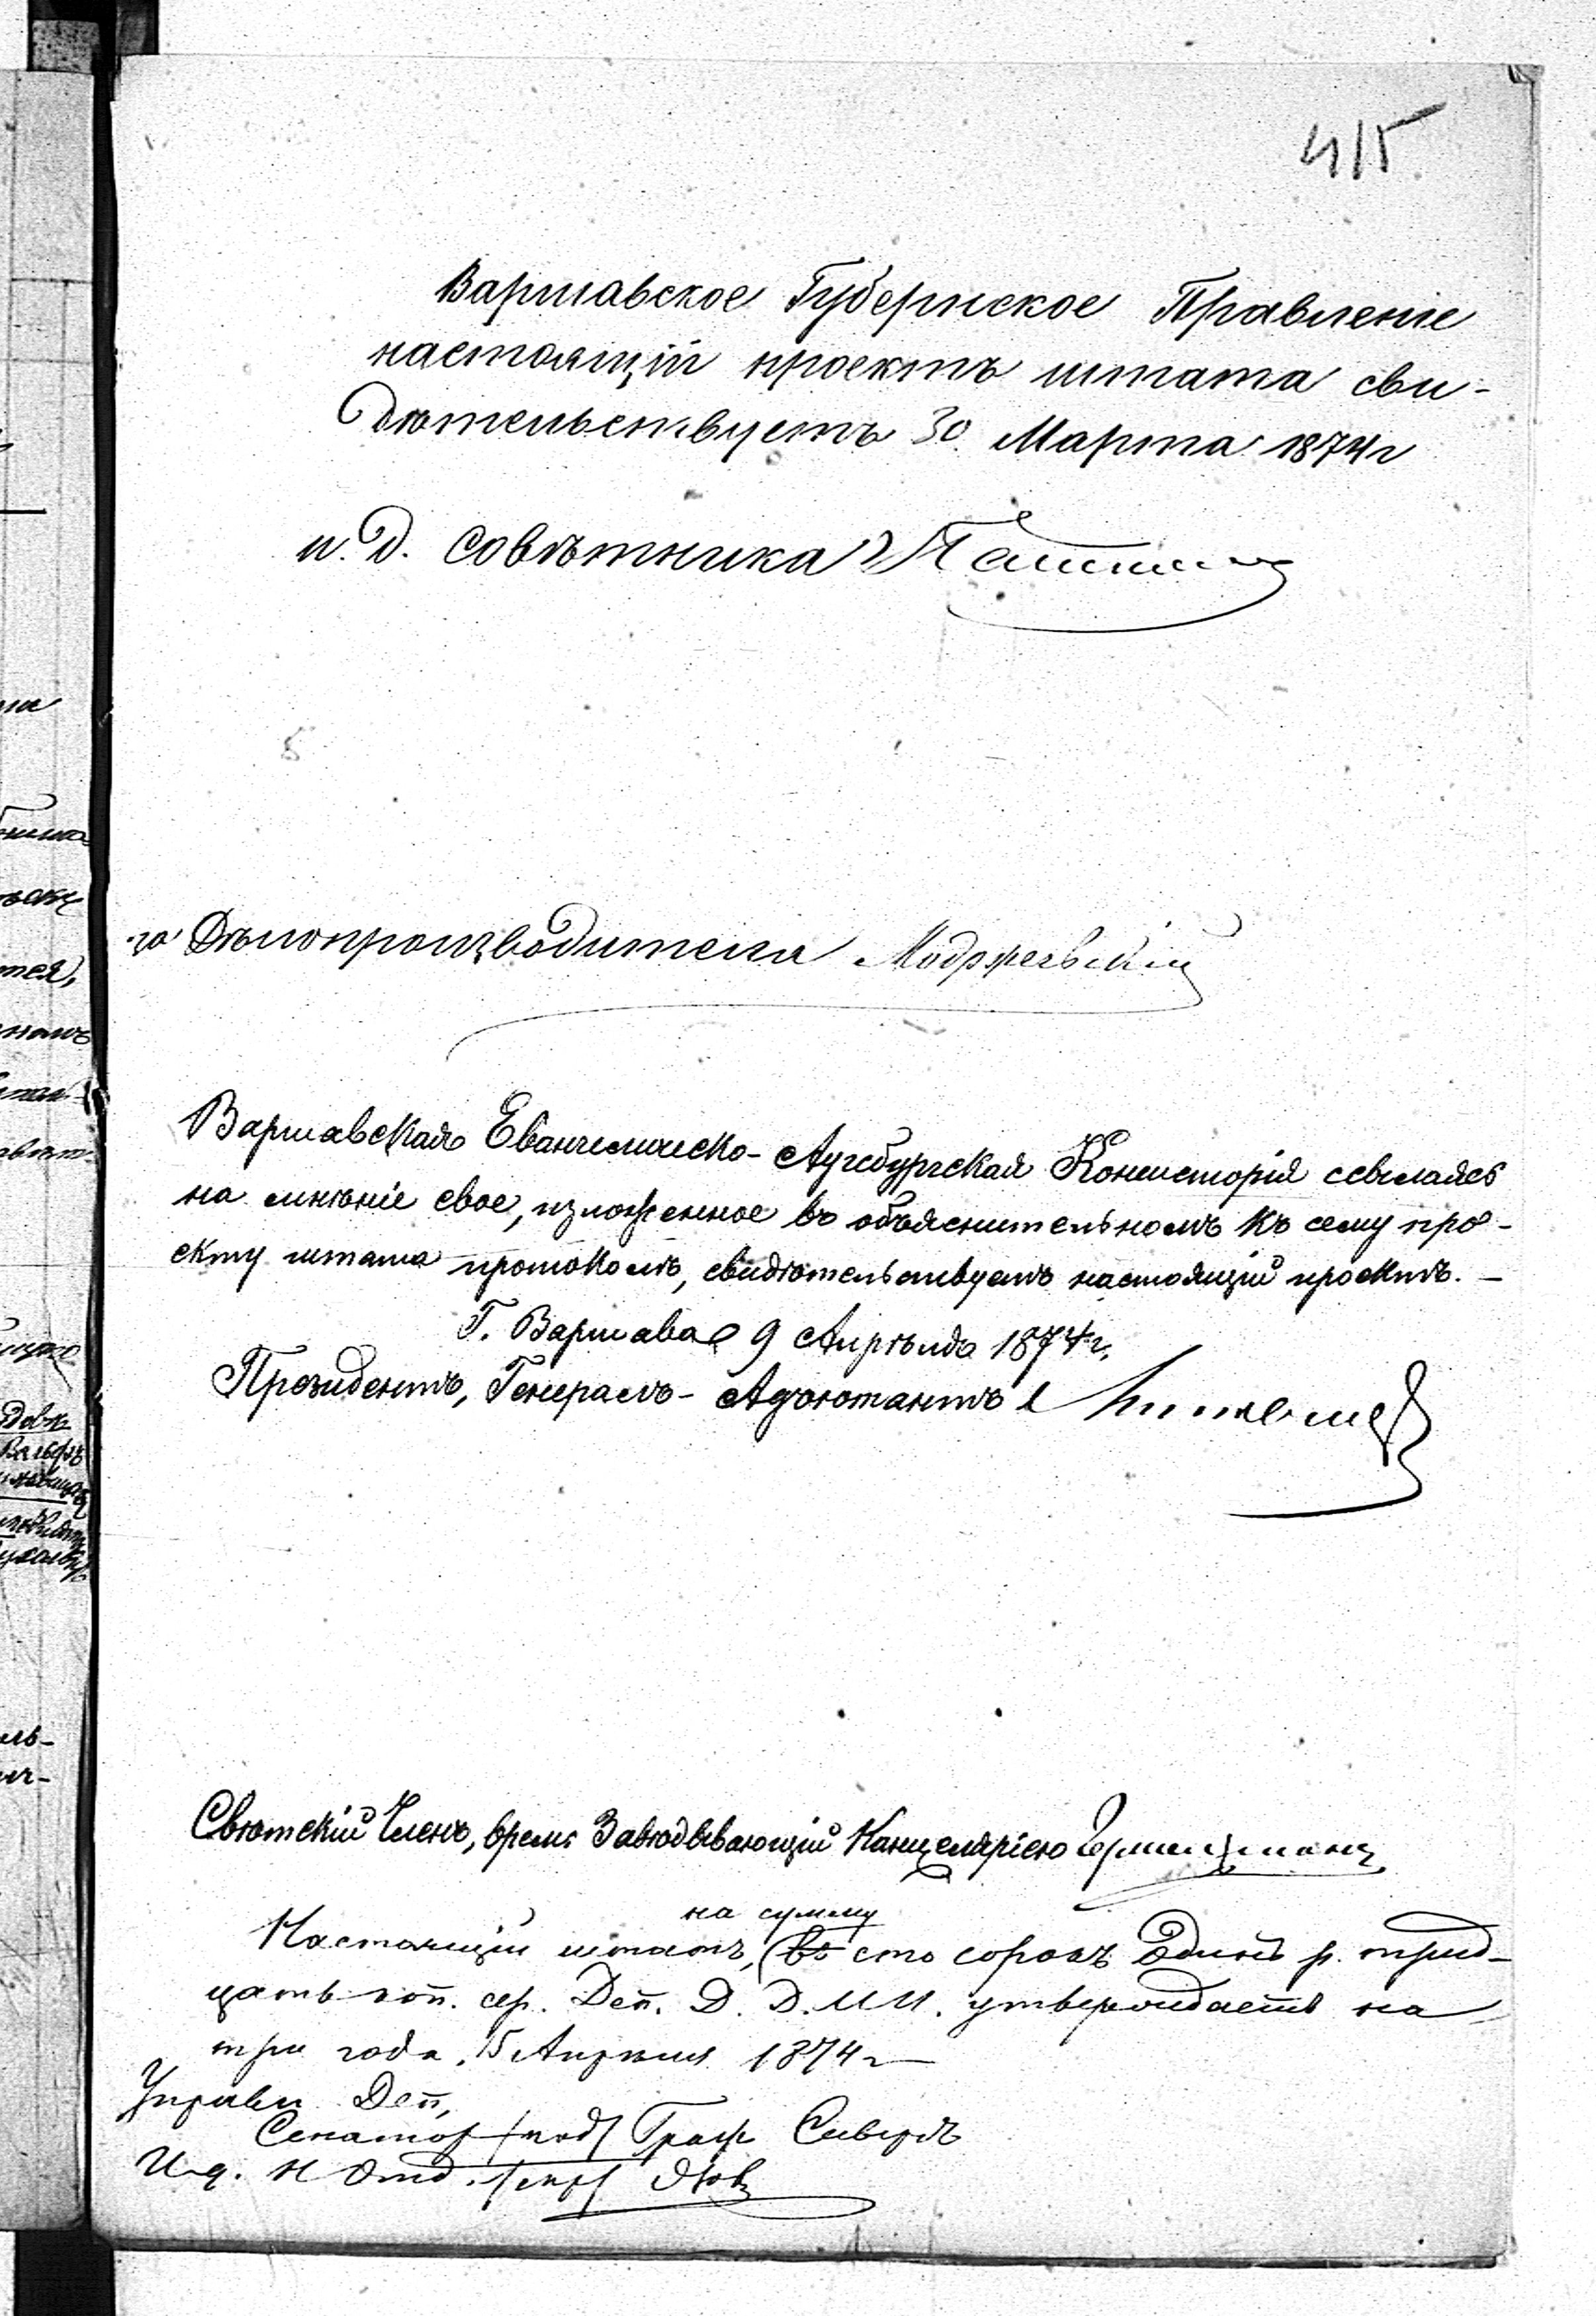 415
Варшавское Губернское Правленіе
настоящій проектъ штата сви-
дѣтельствуетъ 30 Марта 1874 г
и. д. Совѣтника
за Дѣлопроизводителя Модржевскій
Варшавская Евангелическо-Аугсбургская Консисторія ссылаясь
на мнѣніе свое, изложенное въ объяснительномъ къ сему про-
екту штата протоколѣ, свидѣтельствуетъ настоящій проектъ. —
Г. Варшава 9 Апрѣля 1874 г.
Президентъ, Генералъ-Адъютантъ
Свѣтскій Членъ, врем. Завѣдывающій Канцеляріею
на сумму
Настоящій штатъ, (въ сто сорокъ одинъ р. трид-
цать коп. сер. Деп. Д. Д. И И. утверждаетъ на
три года. 15 Апрѣля 1874 г
Управл. Деп,
Сенаторъ /под/ Графъ Сиверсъ
И. д. Н Отд. /скр/